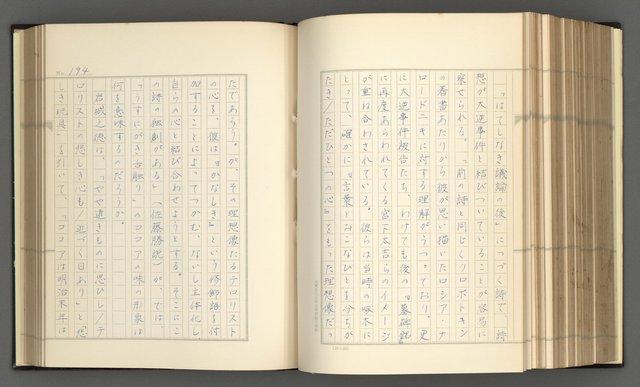 「はてしなき議論の後」につづく詩で、詩
想が大逆事件と結びついていることが容易に
察せられる。「前の詩と同じくクロポトキン
の著書あたりから彼が思い描いたロシア・ナ
ロードニキに対する理解がうつっており、更
に大逆事件被告たち、わけても後の『墓碑銘』
に再度あらわれてくる宮下太吉らのイメージ
が重ね合わされている。彼らは当時の啄木に
とって、確かに『言葉とおこなひとを分ちが
たき/ただひとつの心』をもった理想像だっ
No. 194
たであろう。が、その理想像たるテロリスト
の心を、彼は『かなしき』という修飾語を付
加することによってつかむ、ないし主体化し、
自らの心と結び合わせようとする。そこにこ
の詩の独創がある」(佐藤勝説)が、では、
「うすにがき舌触り」のココアの味の形象は
何を意味するのだろうか。
岩城之徳は、「『やや遠きものに思ひし/テ
ロリストの悲しき心も/近づく日あり』と『悲
しき玩具』を引いて、「ココアは明治末年は